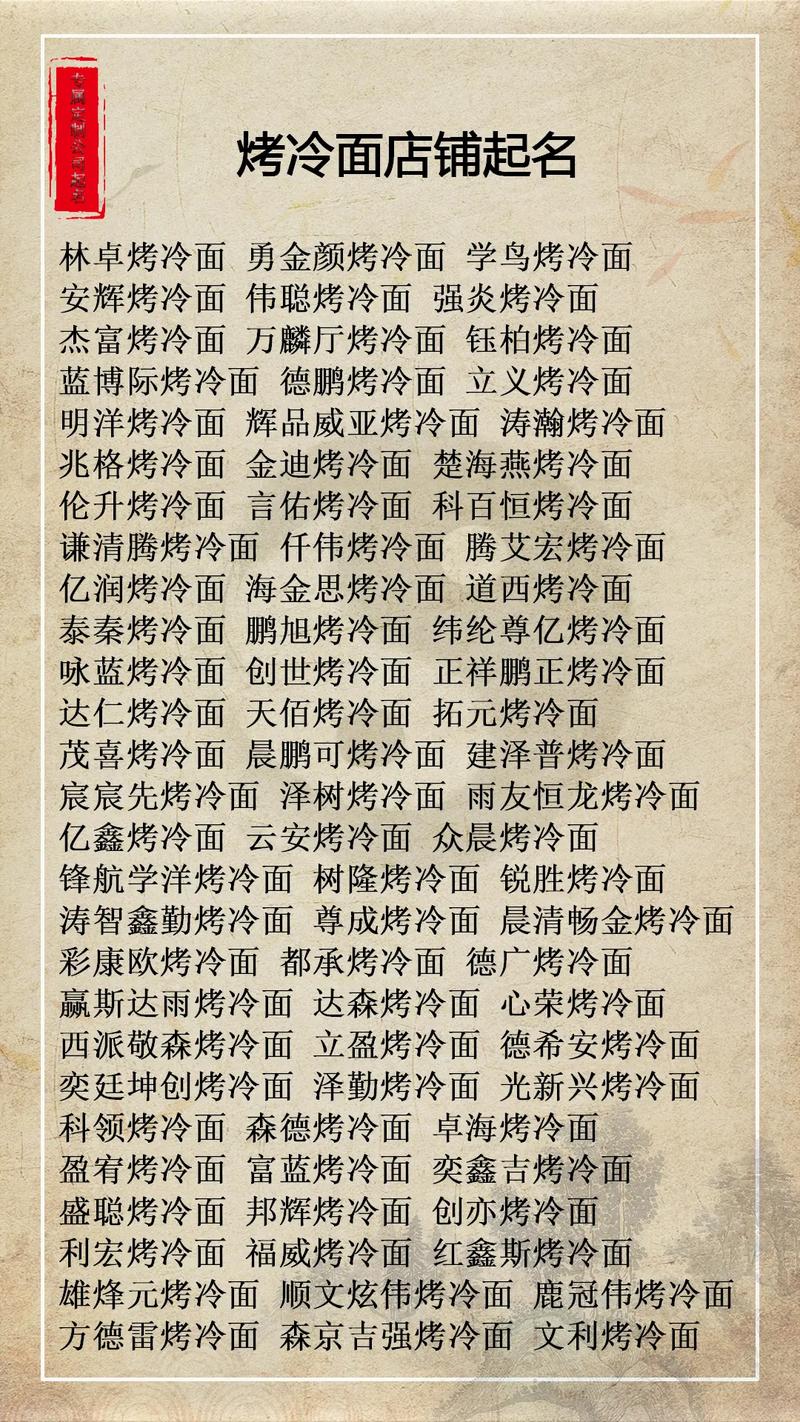 烤冷面店铺起名
林卓烤冷面 勇金颜烤冷面 学鸟烤冷面
安辉烤冷面 伟聪烤冷面 强炎烤冷面
杰富烤冷面 万麟厅烤冷面 钰柏烤冷面
蓝博际烤冷面 德鹏烤冷面 立义烤冷面
明洋烤冷面 辉品威亚烤冷面 涛瀚烤冷面
兆格烤冷面 金迪烤冷面 楚海燕烤冷面
伦升烤冷面 言佑烤冷面 科百恒烤冷面
谦清腾烤冷面 仟伟烤冷面 腾艾宏烤冷面
亿润烤冷面 海金思烤冷面 道西烤冷面
泰秦烤冷面 鹏旭烤冷面 纬纶尊亿烤冷面
咏蓝烤冷面 创世烤冷面 正祥鹏正烤冷面
达仁烤冷面 天佰烤冷面 拓元烤冷面
茂喜烤冷面 晨鹏可烤冷面 建泽普烤冷面
宸宸先烤冷面 泽树烤冷面 雨友恒龙烤冷面
亿鑫烤冷面 云安烤冷面 众晨烤冷面
锋航学洋烤冷面 树隆烤冷面 锐胜烤冷面
涛智鑫勤烤冷面 尊成烤冷面 晨清畅金烤冷面
彩康欧烤冷面 都承烤冷面 德广烤冷面
赢斯达雨烤冷面 达森烤冷面 心荣烤冷面
西派敬森烤冷面 立盈烤冷面 德希安烤冷面
奕廷坤创烤冷面 泽勤烤冷面 光新兴烤冷面
科领烤冷面 森德烤冷面 卓海烤冷面
盈宥烤冷面 富蓝烤冷面 奕鑫吉烤冷面
盛聪烤冷面 邦辉烤冷面 创亦烤冷面
利宏烤冷面 福威烤冷面 红鑫斯烤冷面
雄烽元烤冷面 顺文炫伟烤冷面 鹿冠伟烤冷面
方德雷烤冷面 森京吉强烤冷面 文利烤冷面